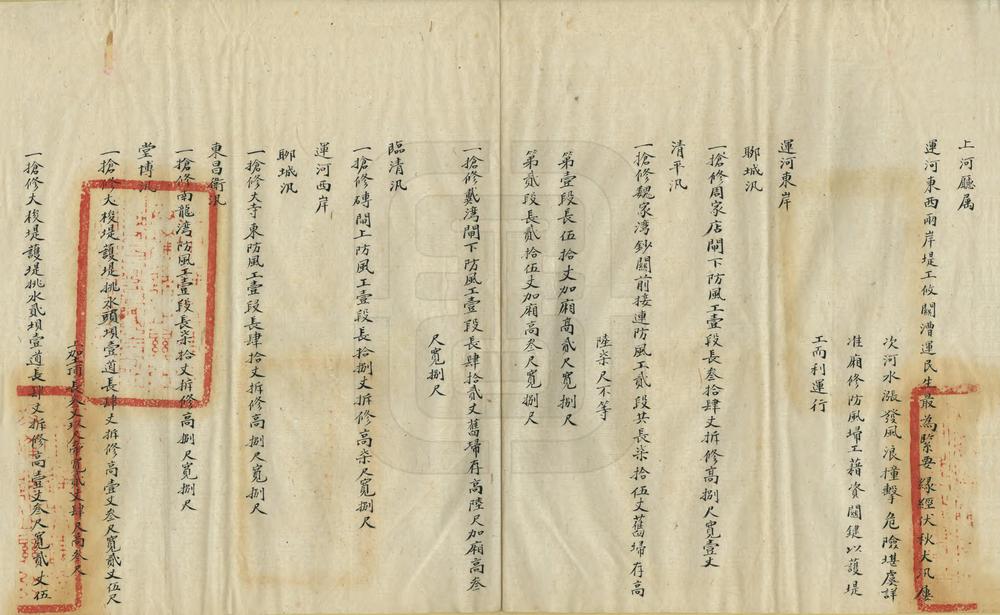 上河廳属
運河東西兩岸堤工攸關漕運民生最為緊要緣經伏秋大汛屢
次河水漲發風浪撞擊危險堪虞詳
准廂修防風埽工藉資關鍵以護堤
工而利運行
運河東岸
聊城汛
一搶修周家店閘下防風工壹段長叁拾肆丈拆修高捌尺寬壹丈
清平汛
一搶修魏家灣鈔關前接連防風工貳段共長柒拾伍丈舊埽存高
陸柒尺不等
第壹段長伍拾丈加廂高貳尺寬捌尺
第貳段長貳拾伍丈加廂高叁尺寬捌尺
一搶修戴灣閘下防風工壹段長肆拾貳丈舊埽存高陸尺加廂高叁
尺寬捌尺
臨清汛
一搶修磚閘上防風工壹段長拾捌丈拆修高柒尺寬捌尺
運河西岸
聊城汛
一搶修大寺東防風工壹段長肆拾丈拆修高捌尺寬捌尺
東昌衛汛
一搶修南龍灣防風工壹段長柒拾丈拆修高捌尺寬捌尺
堂博汛
一搶修大梭堤護堤挑水頭壩壹道長肆丈拆修高壹丈叁尺寬貳丈伍尺
長叁丈寬貳丈肆尺高叁尺
一搶修大梭堤護堤挑水貳壩壹道長肆丈拆修高壹丈叁尺寬貳丈伍